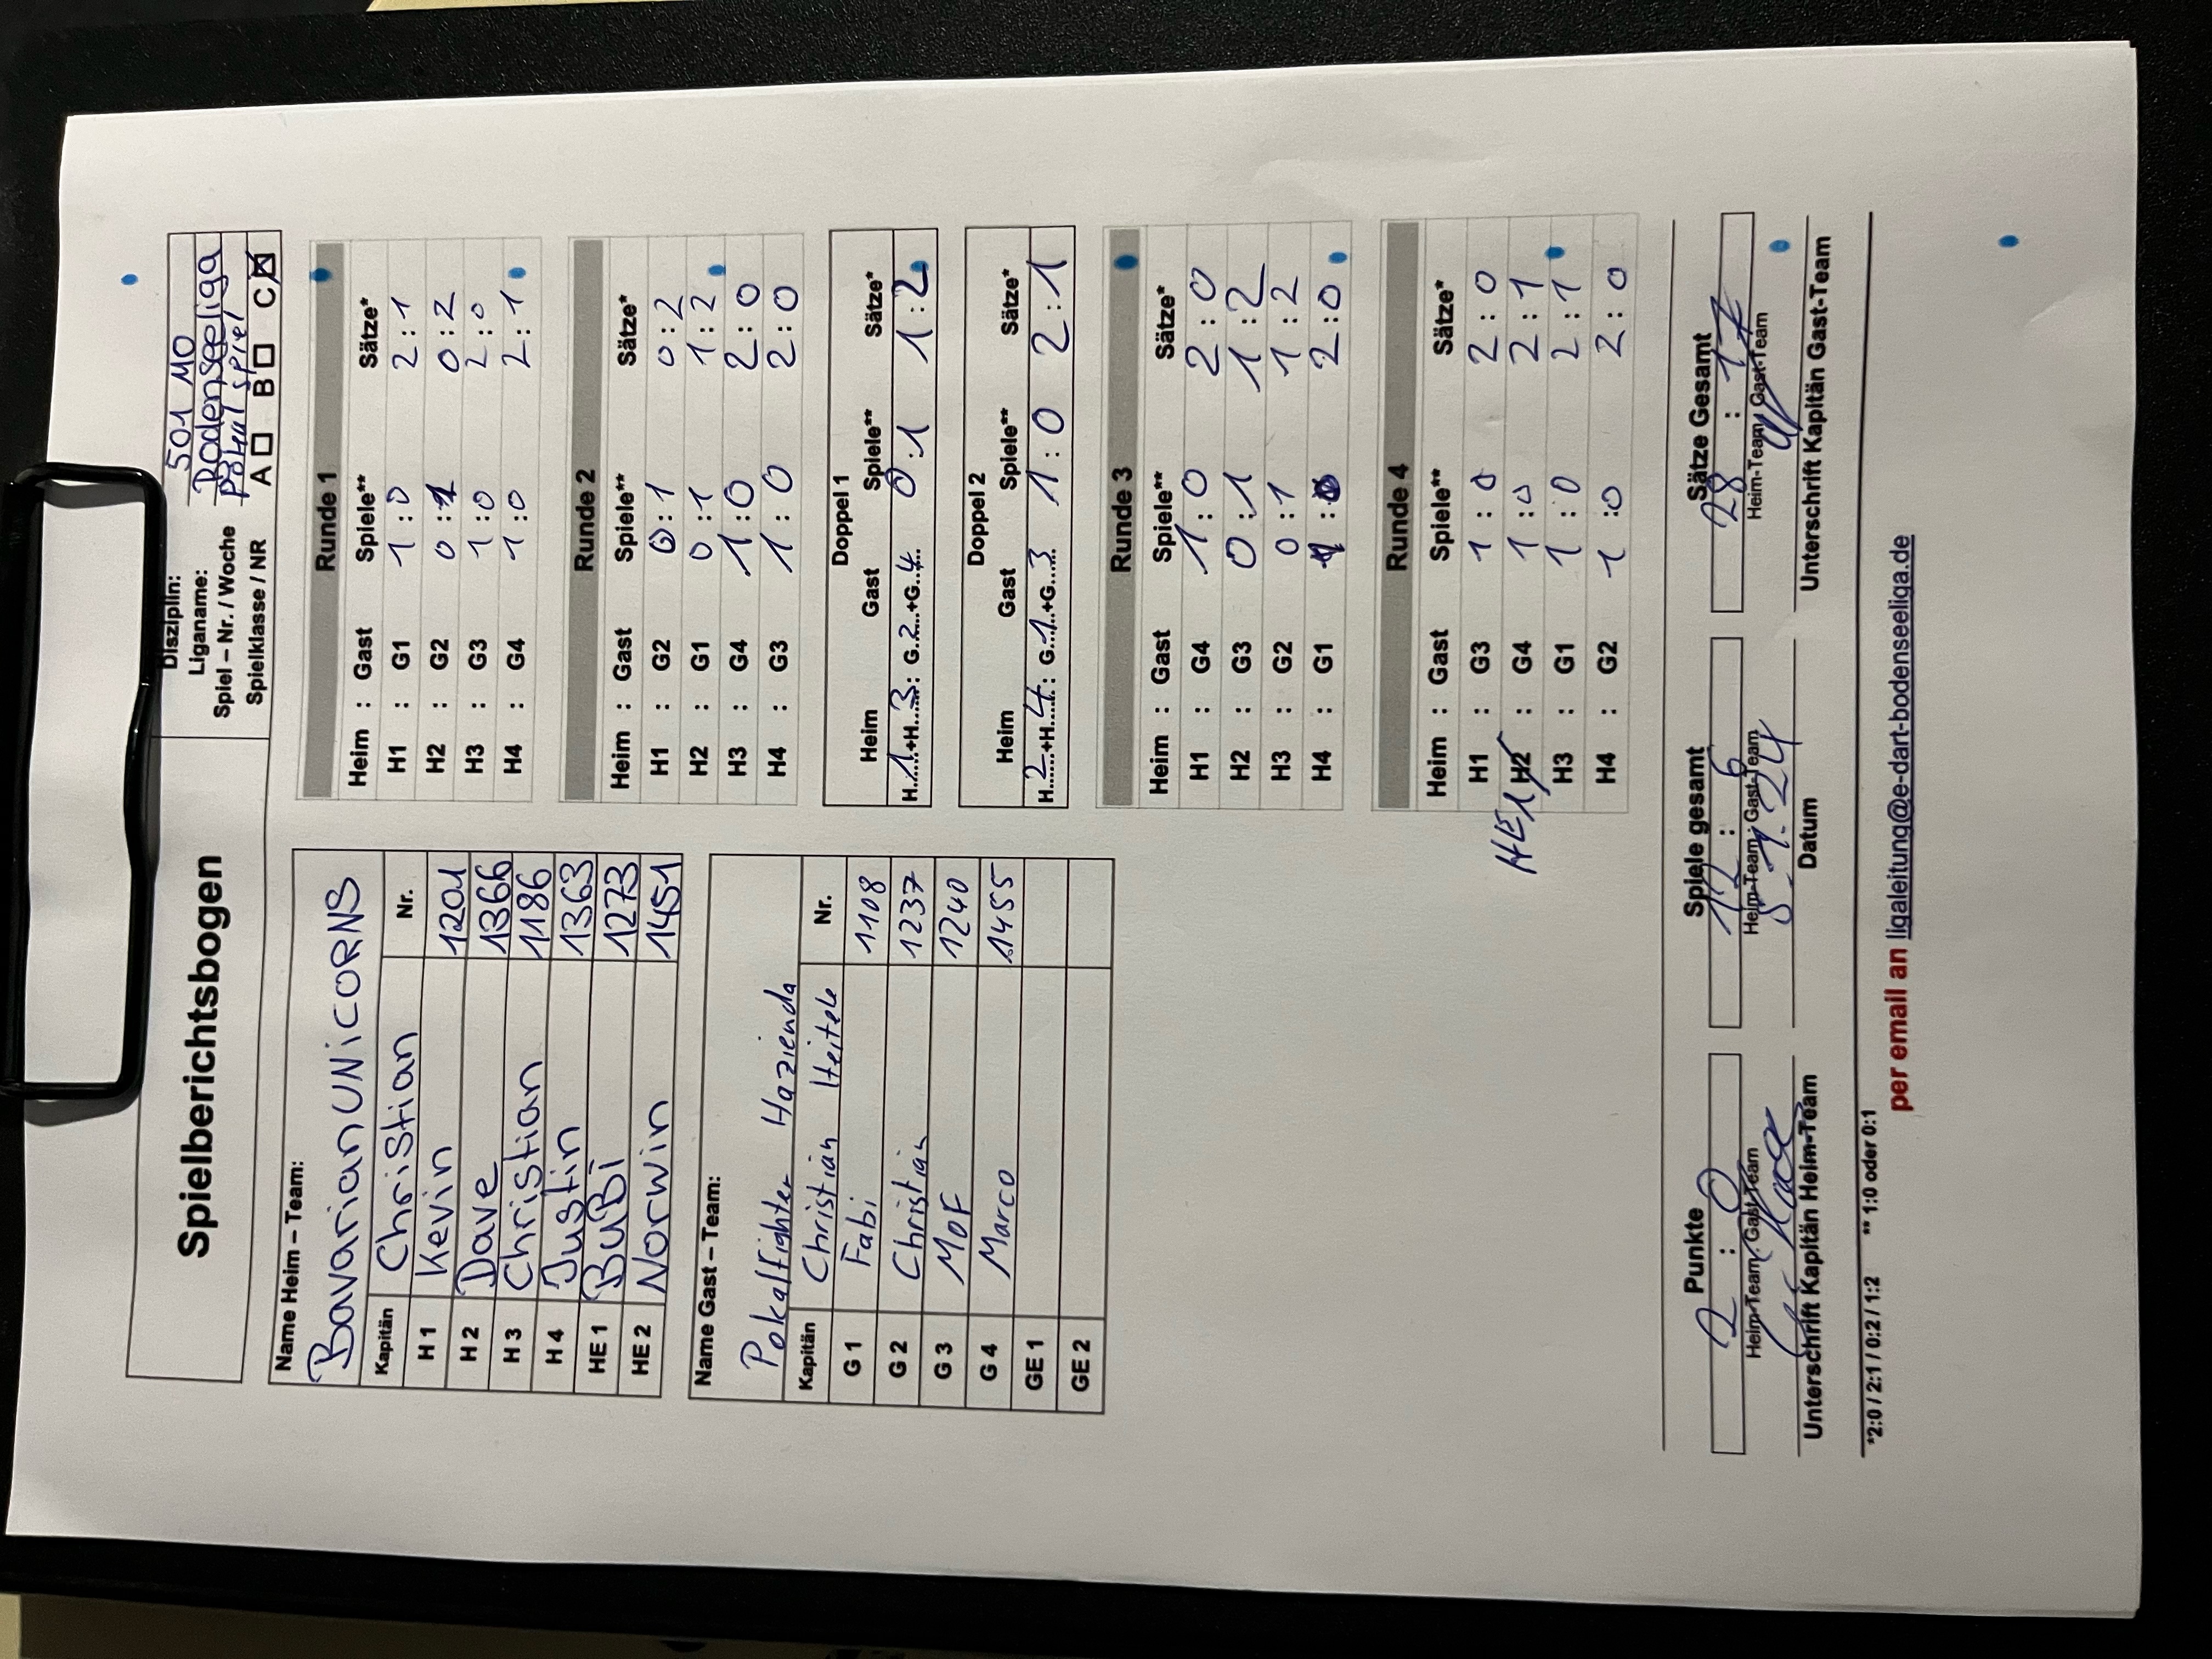 Spielberichtsbogen
Disziplin: 501 MO
Liganame: Bodenseeliga
Spiel – Nr. / Woche Pokal spiel
Spielklasse / NR A ☐ B ☐ C ☒
Name Heim – Team:
Bavarian UNiCORNS
Kapitän Christian Nr.
H 1 Kevin 1201
H 2 Dave 1366
H 3 Christian 1186
H 4 Justin 1363
HE 1 BuBi 1273
HE 2 Norwin 1451
Name Gast – Team:
Pokalfighter Hazienda
Kapitän Christian Heitele Nr.
G 1 Fabi 1108
G 2 Christian 1237
G 3 MoF 1240
G 4 Marco 1455
GE 1
GE 2
Runde 1
Heim : Gast Spiele** Sätze*
H1 : G1 1:0 2:1
H2 : G2 0:1 0:2
H3 : G3 1:0 2:0
H4 : G4 1:0 2:1
Runde 2
Heim : Gast Spiele** Sätze*
H1 : G2 0:1 0:2
H2 : G1 0:1 1:2
H3 : G4 1:0 2:0
H4 : G3 1:0 2:0
Doppel 1
Heim Gast Spiele** Sätze*
H...1...+H...3...: G...2...+G...4... 0:1 1:2
Doppel 2
Heim Gast Spiele** Sätze*
H...2...+H...4...: G...1...+G...3 1:0 2:1
Runde 3
Heim : Gast Spiele** Sätze*
H1 : G4 1:0 2:0
H2 : G3 0:1 1:2
H3 : G2 0:1 1:2
H4 : G1 1:0 2:0
Runde 4
Heim : Gast Spiele** Sätze*
H1 : G3 1:0 2:0
HE1 H2 : G4 1:0 2:1
H3 : G1 1:0 2:1
H4 : G2 1:0 2:0
Punkte Spiele gesamt Sätze Gesamt
2 : 0 12 : 6 28 : 17
Heim-Team Gast-Team Heim-Team Gast-Team Heim-Team Gast-Team
5.7.24
Unterschrift Kapitän Heim-Team Datum Unterschrift Kapitän Gast-Team
*2:0 / 2:1 / 0:2 / 1:2 ** 1:0 oder 0:1
per email an ligaleitung@e-dart-bodenseeliga.de